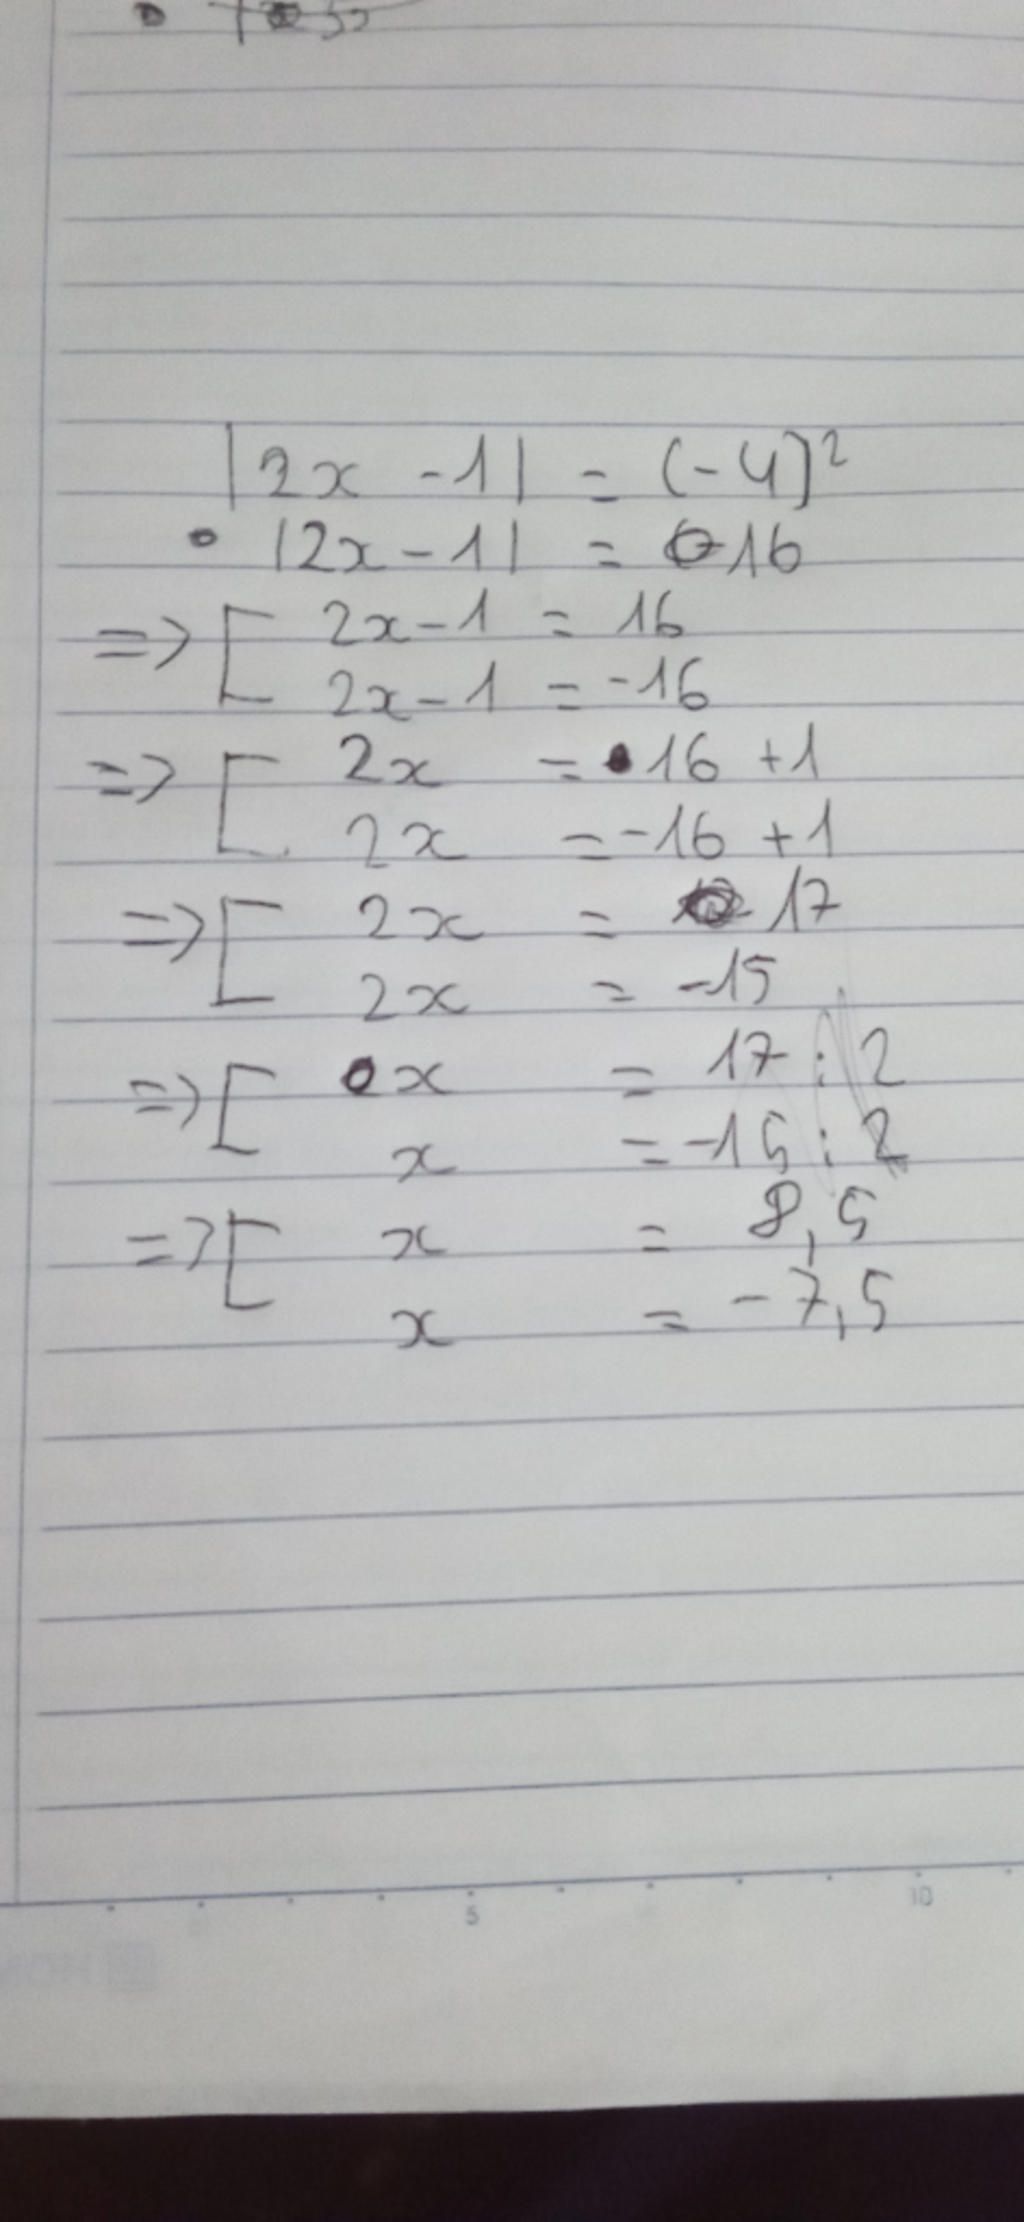 |2x - 1| = (-4)²
|2x - 1| = 16
=> [ 2x - 1 = 16
2x - 1 = -16
=> [ 2x = 16 + 1
2x = -16 + 1
=> [ 2x = 17
2x = -15
=> [ x = 17 : 2
x = -15 : 2
=> [ x = 8,5
x = -7,5
5 10